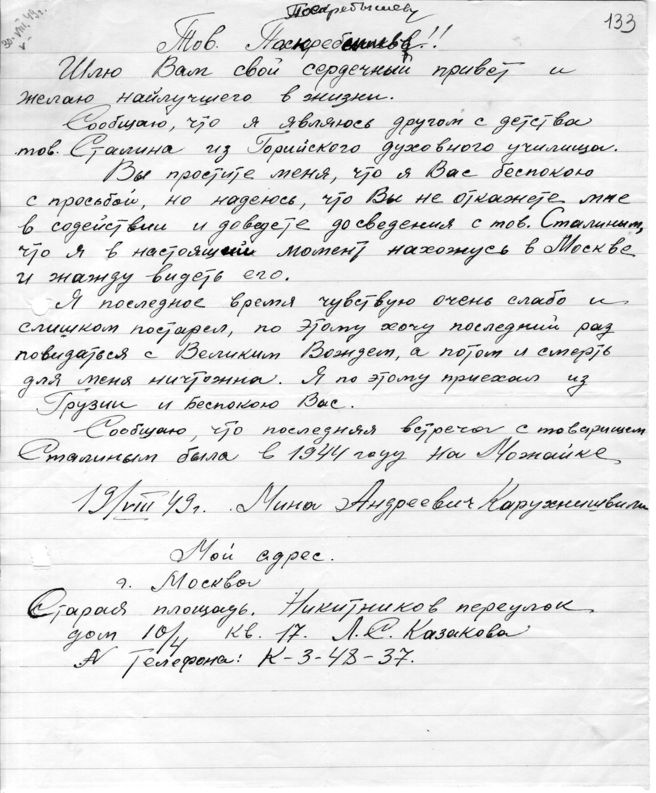 Поскребышеву
133
30-VIII 49г.
Тов. Паскребышев!!
Шлю Вам свой сердечный привет и
желаю найлучшего в жизни.
Сообщаю, что я являюсь другом с детства
тов. Сталина из Горийского духовного училища.
Вы простите меня, что я Вас беспокою
с просьбой, но надеюсь, что Вы не откажете мне
в содействии и доведете досведения с тов. Сталиным,
что я в настоящий момент нахожусь в Москве
и жажду видеть его.
Я последное время чувствую очень слабо и
слишком постарел, по этому хочу последний раз
повидаться с Великим Вождем, а потом и смерть
для меня ничтожна. Я по этому приехал из
Грузии и беспокою Вас.
Сообщаю, что последняя встреча с товарищем
Сталиным была в 1944 году на Можайке
19/VIII 49г. Мина Андреевич Каружнишвили
Мой адрес.
г. Москва
Старая площадь. Никитников переулок
дом 10/4 кв. 17. Л.С. Казакова
N Телефона: К-3-48-37.